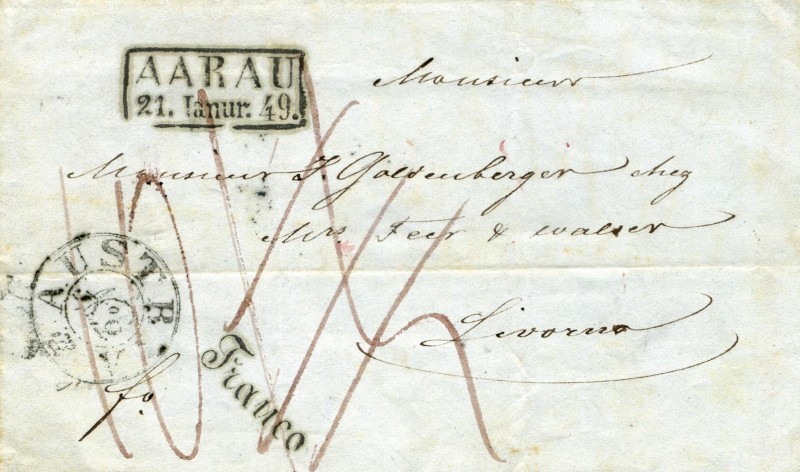 AARAU
21. Ianur. 49.
Monsieur
Monsieur J. Goldenberger chez
Mrs Feer & Walser
Livorno
AUSTR
fo.
Franco